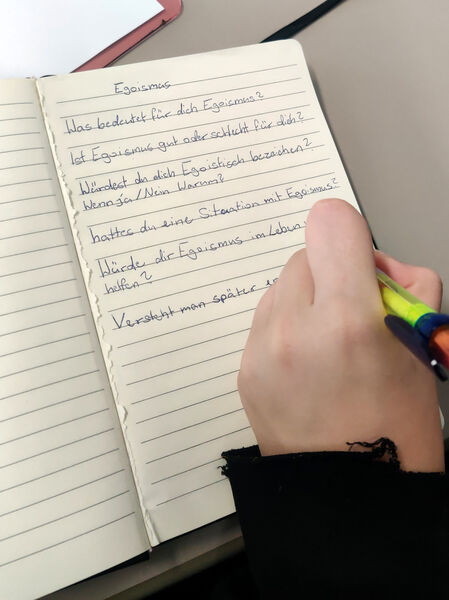 Egoismus
Was bedeutet für dich Egoismus?
Ist Egoismus gut oder schlecht für dich?
Würdest du dich Egoistisch bezeichen?
Wenn ja / Nein Warum?
hattes du eine Situation mit Egoismus?
Würde dir Egoismus im Leben
helfen?
Versteht man später